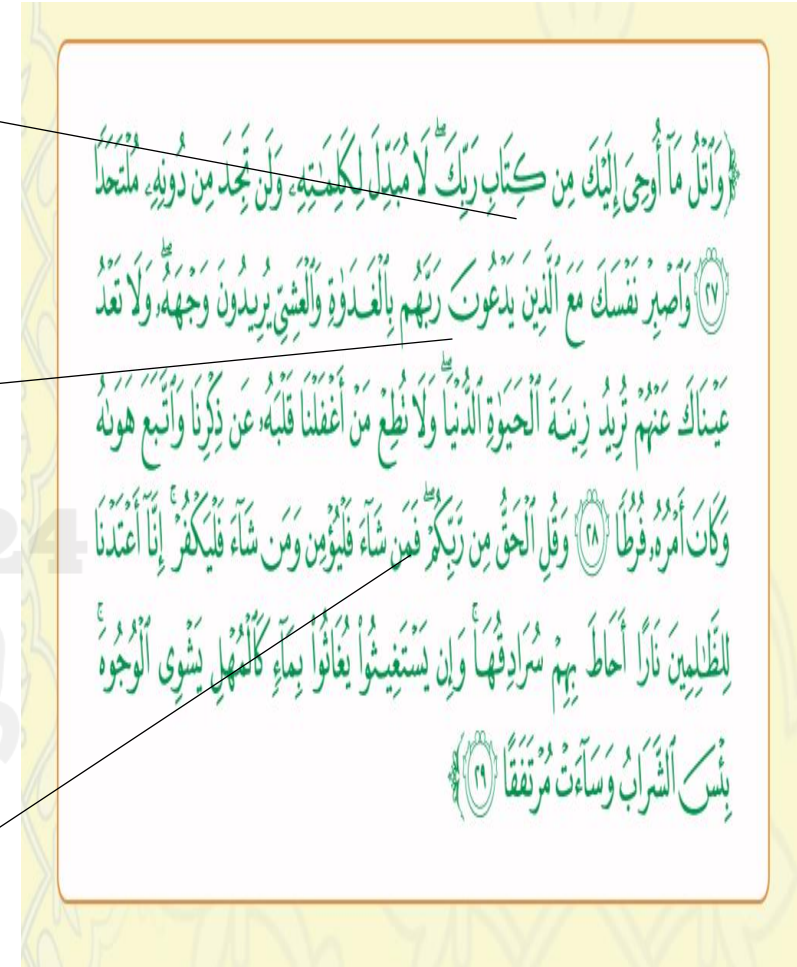 ﴿وَٱتْلُ مَآ أُوحِىَ إِلَيْكَ مِن كِتَابِ رَبِّكَ ۖ لَا مُبَدِّلَ لِكَلِمَـٰتِهِۦ وَلَن تَجِدَ مِن دُونِهِۦ مُلْتَحَدًا
٢٧ وَٱصْبِرْ نَفْسَكَ مَعَ ٱلَّذِينَ يَدْعُونَ رَبَّهُم بِٱلْغَدَوٰةِ وَٱلْعَشِىِّ يُرِيدُونَ وَجْهَهُۥ ۖ وَلَا تَعْدُ
عَيْنَاكَ عَنْهُمْ تُرِيدُ زِينَةَ ٱلْحَيَوٰةِ ٱلدُّنْيَا ۖ وَلَا تُطِعْ مَنْ أَغْفَلْنَا قَلْبَهُۥ عَن ذِكْرِنَا وَٱتَّبَعَ هَوَىٰهُ
وَكَانَ أَمْرُهُۥ فُرُطًا ٢٨ وَقُلِ ٱلْحَقُّ مِن رَّبِّكُمْ ۖ فَمَن شَآءَ فَلْيُؤْمِن وَمَن شَآءَ فَلْيَكْفُرْ ۚ إِنَّآ أَعْتَدْنَا
لِلظَّـٰلِمِينَ نَارًا أَحَاطَ بِهِمْ سُرَادِقُهَا ۚ وَإِن يَسْتَغِيثُوا۟ يُغَاثُوا۟ بِمَآءٍ كَٱلْمُهْلِ يَشْوِى ٱلْوُجُوهَ ۚ
بِئْسَ ٱلشَّرَابُ وَسَآءَتْ مُرْتَفَقًا ٢٩﴾
24